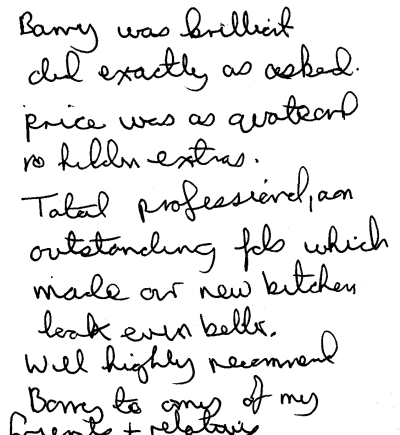 Barry was brilliant
did exactly as asked.
price was as quoted and
no hidden extras.
Total professional, an
outstanding job which
made our new kitchen
look even better.
Will highly recommend
Barry to any of my
+ relatives